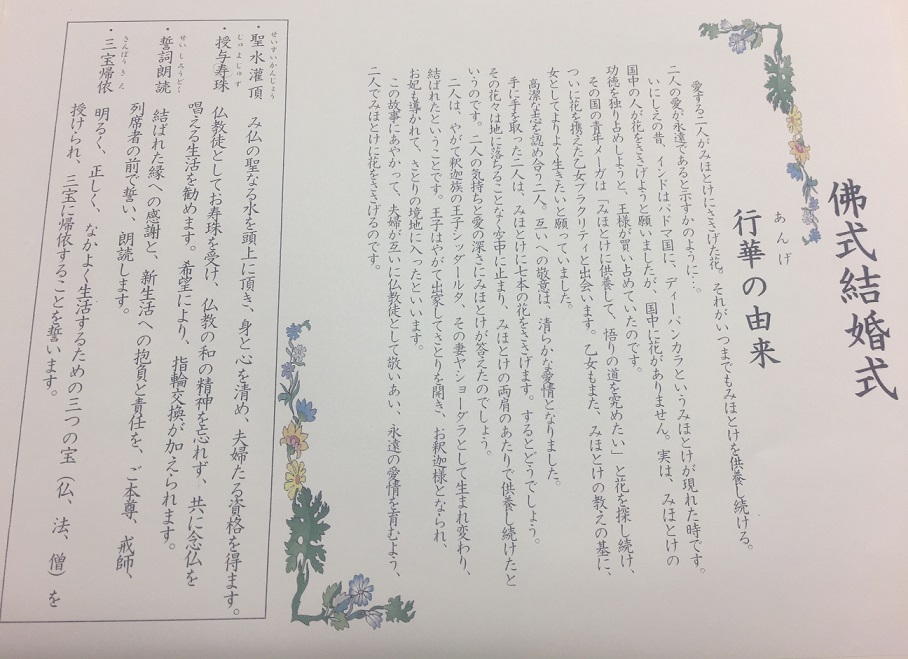 佛式結婚式
あんげ
行華の由来
愛する二人がみほとけにささげた花。それがいつまでもみほとけを供養し続ける。
二人の愛が永遠であると示すかのように…。
いにしえの昔、インドはパドマ国に、ディーパンカラというみほとけが現れた時です。
国中の人が花をささげようと願いましたが、国中に花がありません。実は、みほとけの
功徳を独り占めしようと、王様が買い占めていたのです。
その国の青年メーガは「みほとけに供養して、悟りの道を究めたい」と花を探し続け、
ついに花を携えた乙女プラクリティと出会います。乙女もまた、みほとけの教えの基に、
女としてよりよく生きたいと願っていました。
高潔な志を認め合う二人。互いへの敬意は、清らかな愛情となりました。
手に手を取った二人は、みほとけに七本の花をささげます。するとどうでしょう。
その花々は地に落ちることなく空中に止まり、みほとけの両肩のあたりで供養し続けたと
いうのです。二人の気持ちと愛の深さにみほとけが答えたのでしょう。
二人は、やがて釈迦族の王子シッダールタ、その妻ヤショーダラとして生まれ変わり、
結ばれたということです。王子はやがて出家してさとりを開き、お釈迦様となられ、
お妃も導かれて、さとりの境地に入ったといいます。
この故事にあやかって、夫婦が互いに仏教徒として敬いあい、永遠の愛情を育むよう、
二人でみほとけに花をささげるのです。
せいすいかんじょう
・聖水灌頂 み仏の聖なる水を頭上に頂き、身と心を清め、夫婦たる資格を得ます。
じゅよじゅず
・授与寿珠 仏教徒としてお寿珠を受け、仏教の和の精神を忘れず、共に念仏を
唱える生活を勧めます。希望により、指輪交換が加えられます。
せいしろうどく
・誓詞朗読 結ばれた縁への感謝と、新生活への抱負と責任を、ご本尊、戒師、
列席者の前で誓い、朗読します。
さんぼうきえ
・三宝帰依 明るく、正しく、なかよく生活するための三つの宝（仏、法、僧）を
授けられ、三宝に帰依することを誓います。